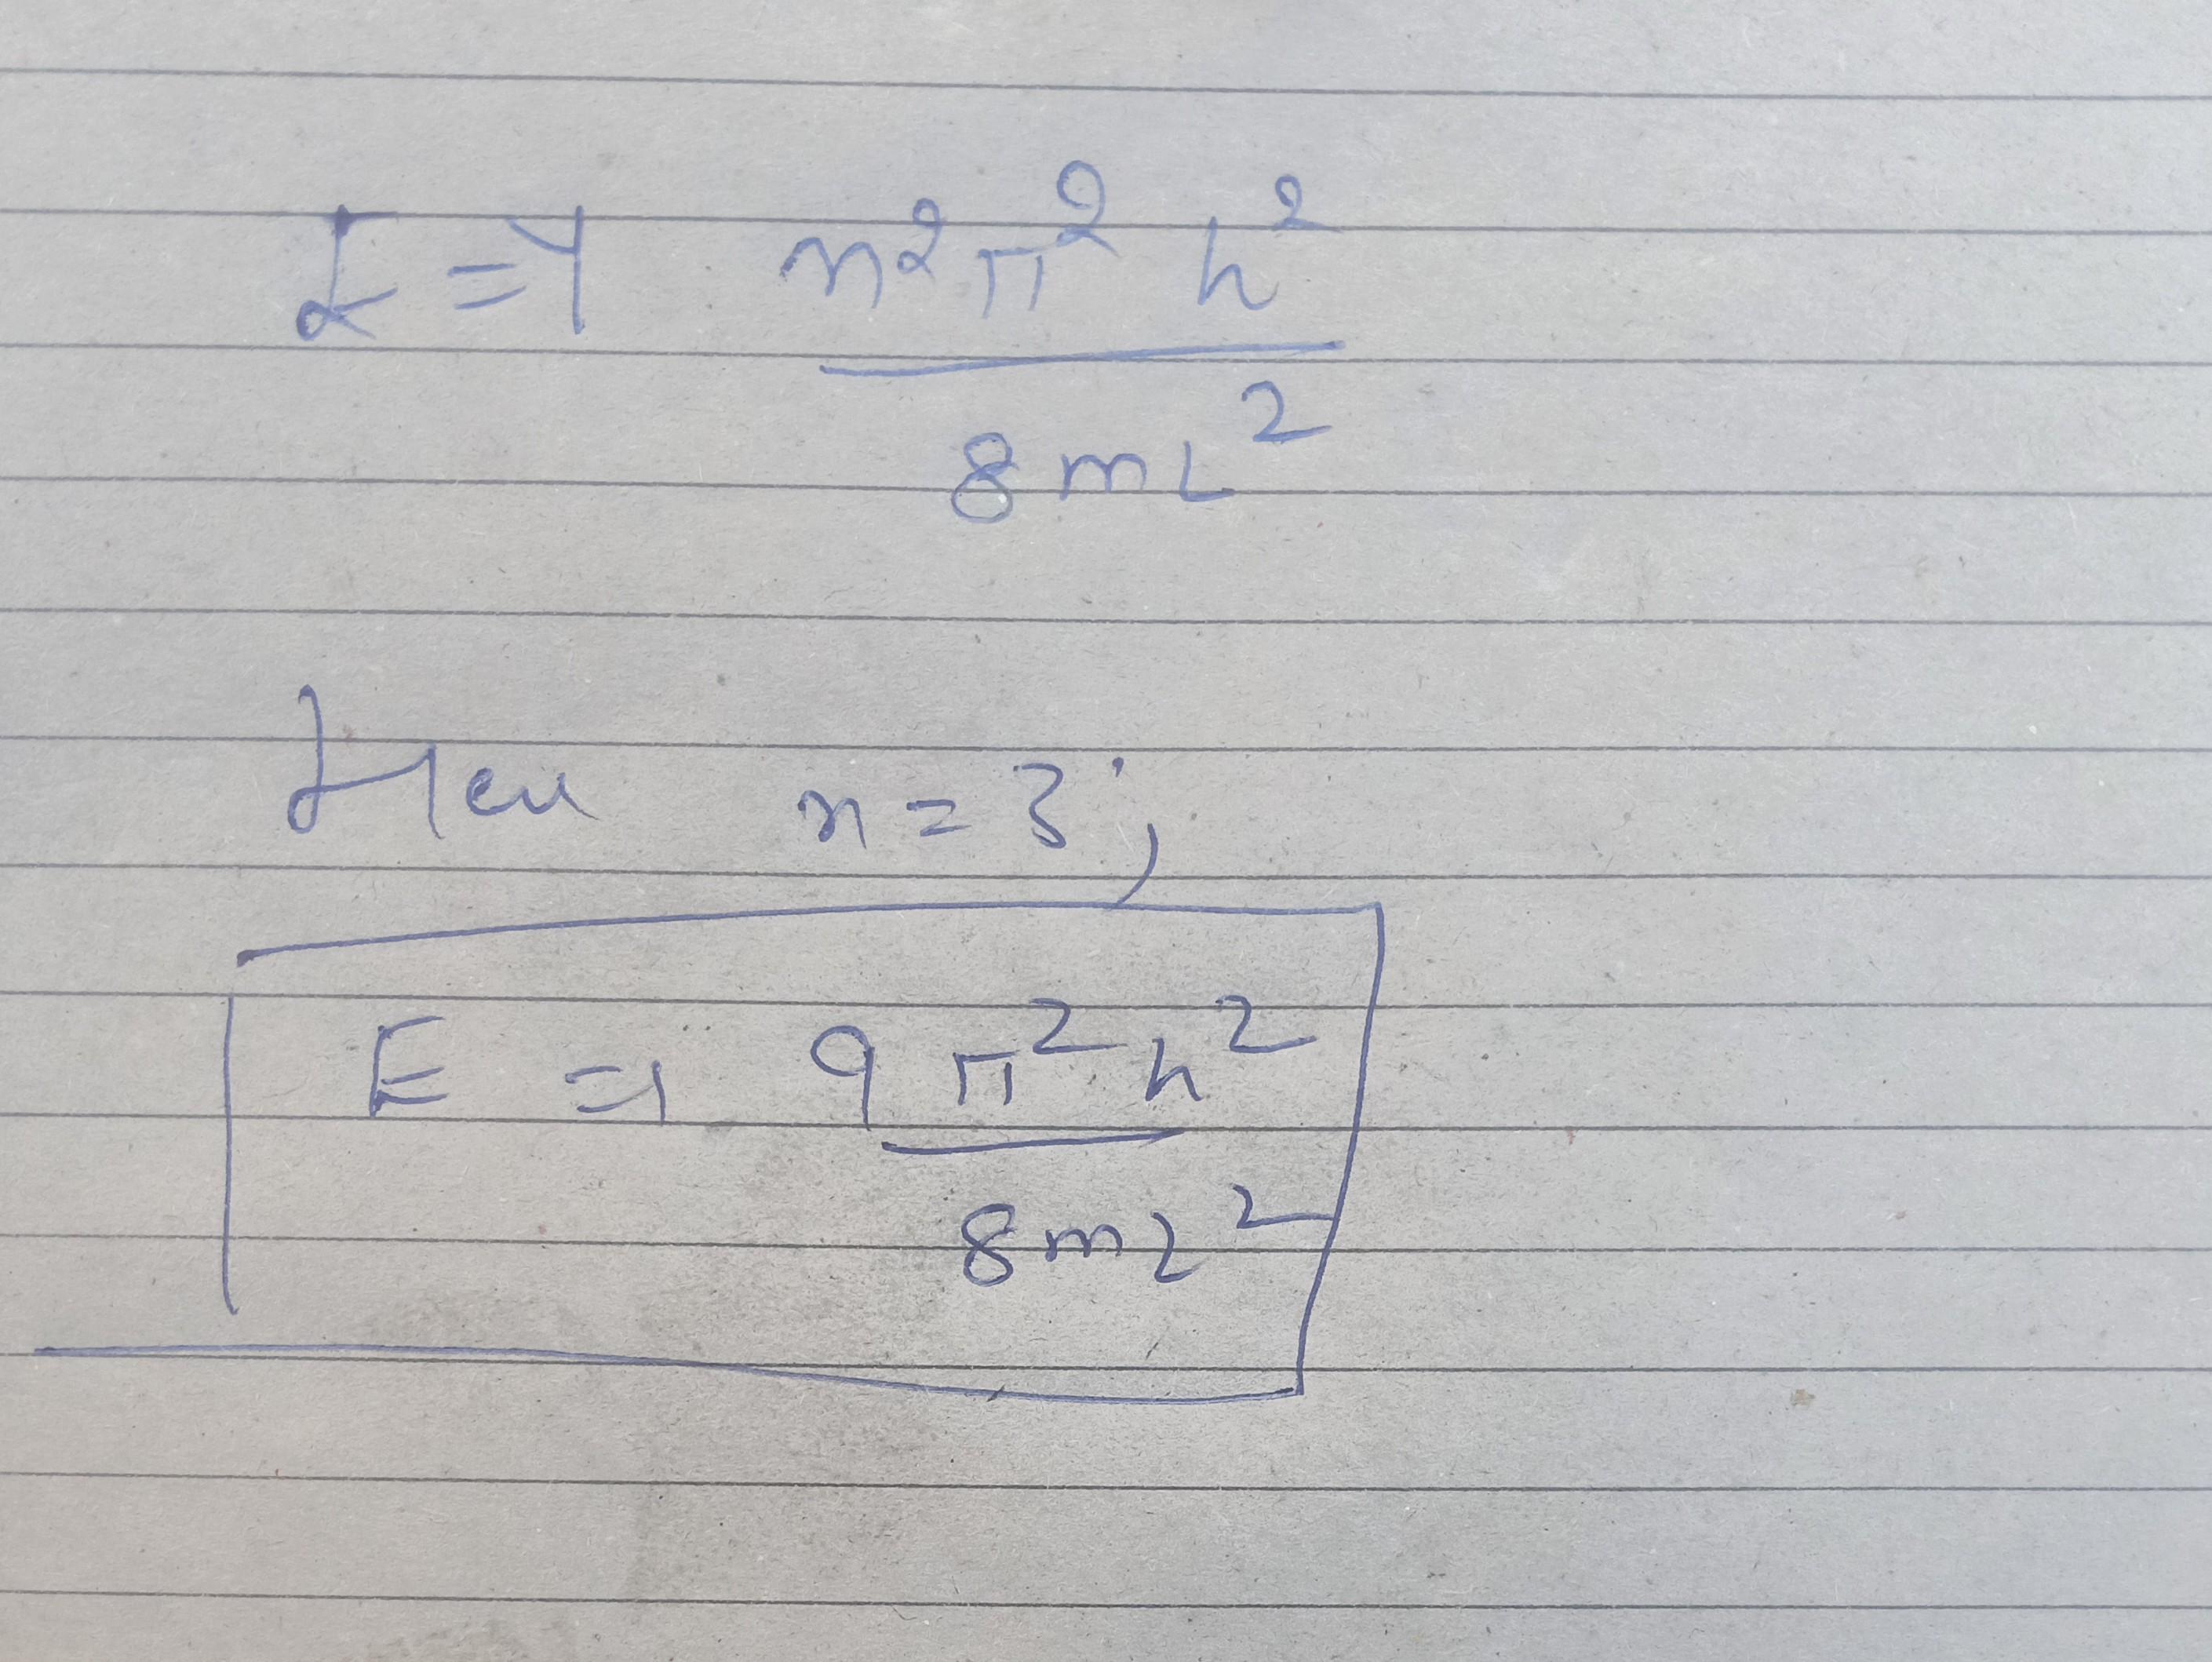 E = n² π² h²
8 m L²
Here n = 3 ;
E = 9 π² h²
8 m L²